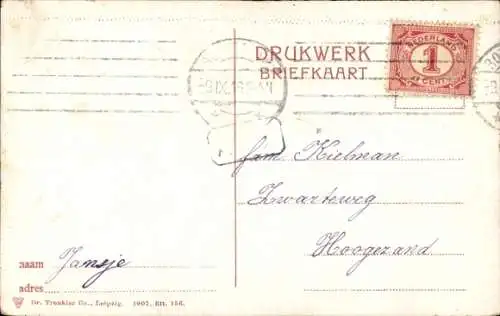 DRUKWERK
BRIEFKAART
NEDERLAND
1
CENT
fam. Kielman
Zwarteweg
Hoogezand
naam Jansje
adres
Dr. Trenkler Co., Leipzig. 1907. Ett. 156.